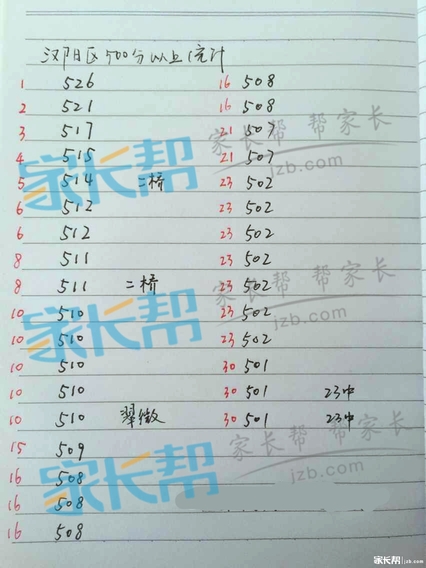 汉阳区500分以上统计
1 526
2 521
3 517
4 515
5 514 二桥
6 512
6 512
8 511
8 511 二桥
10 510
10 510
10 510
10 510
10 510 翠微
15 509
16 508
16 508
16 508
16 508
16 508
21 507
21 507
23 502
23 502
23 502
23 502
23 502
23 502
23 502
30 501
30 501 23中
30 501 23中
家长帮
家长帮
家长帮
帮家长 帮家长
jzb.com
帮家长 帮家长
jzb.com
帮家长 帮家长
jzb.com
家长帮 jzb.com